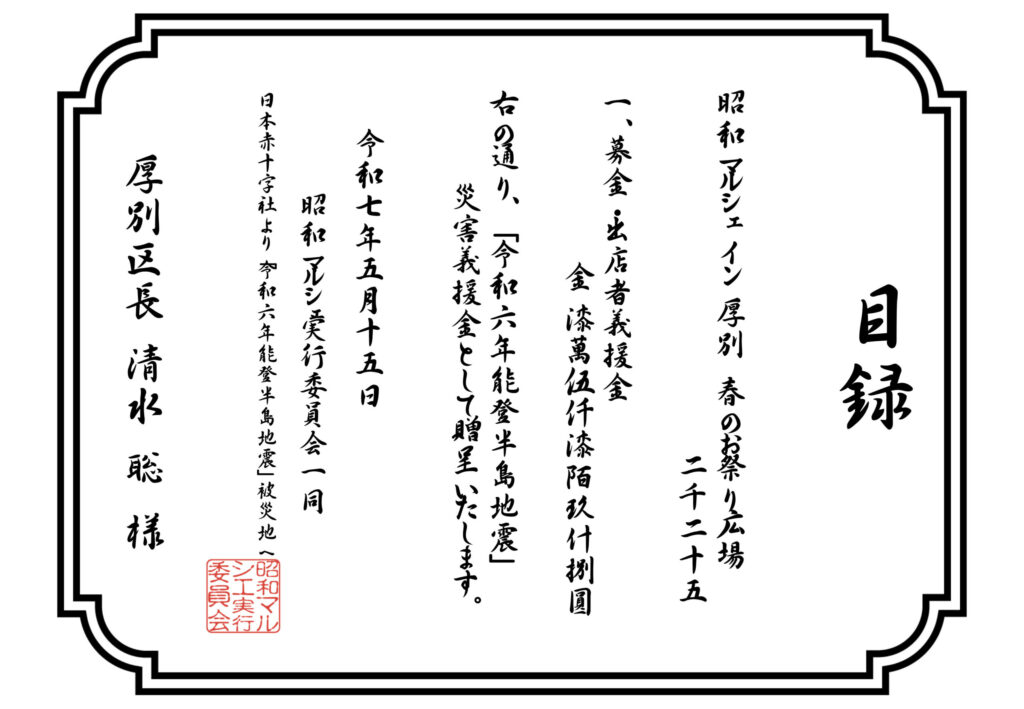 目録
昭和マルシェイン厚別 春のお祭り広場
二千二十五
一、募金・出店者義援金
金 漆萬伍仟漆陌玖什捌圓
右の通り、「令和六年能登半島地震」
災害義援金として贈呈いたします。
令和七年五月十五日
昭和マルシェ実行委員会一同
日本赤十字社より「令和六年能登半島地震」被災地へ
厚別区長 清水 聡 様
昭和マル
シェ実行
委員会